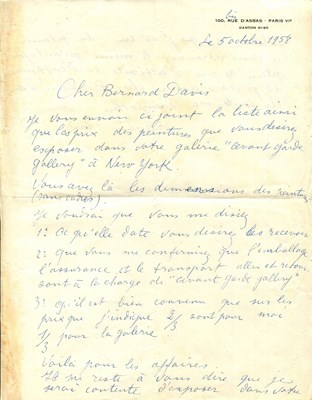 bis
100, RUE D'ASSAS - PARIS VIe
DANTON
Le 5 octobre 1958
Cher Bernard Davis
Je vous envoi ci joint la liste ainsi
que les prix des peintures que vous desirez
exposer dans votre galerie "avant garde
gallery" à New York.
Vous avez là les demenssions des peintures
(sans cadres).
Je voudrai que vous me disiez
1: à quelle date vous desirez les recevoir
2: que vous me confirmiez que l'emballage
l'assurance et le transport aller et retour
sont à la charge de "avant garde gallery"
3: qu'il est bien convenu que sur les
prix que j'indique 2/3 sont pour moi
1/3 pour la galerie
Voilà pour les affaires
Il me reste à vous dire que je
serai contente d'exposer dans votre